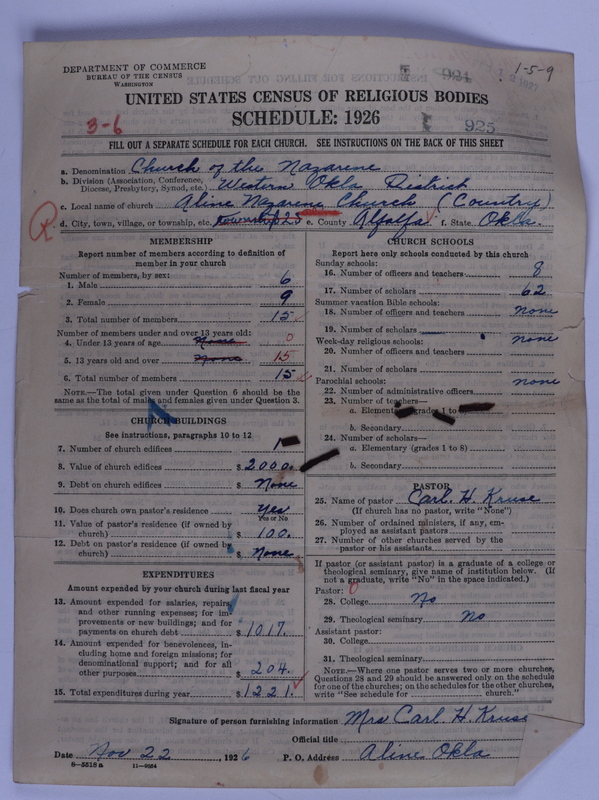 DEPARTMENT OF COMMERCE
BUREAU OF THE CENSUS
WASHINGTON
924
1-5-9
UNITED STATES CENSUS OF RELIGIOUS BODIES
3-6
SCHEDULE: 1926
925
FILL OUT A SEPARATE SCHEDULE FOR EACH CHURCH. SEE INSTRUCTIONS ON THE BACK OF THIS SHEET
a. Denomination Church of the Nazarene
b. Division (Association, Conference, Diocese, Presbytery, Synod, etc.) Western Okla District
c. Local name of church Aline Nazarene Church (Country)
d. City, town, village, or township, etc. township 23 e. County Alfalfa f. State Okla.
MEMBERSHIP
Report number of members according to definition of
member in your church
Number of members, by sex:
1. Male 6
2. Female 9
3. Total number of members 15
Number of members under and over 13 years old:
4. Under 13 years of age None 0
5. 13 years old and over None 15
6. Total number of members 15
NOTE.—The total given under Question 6 should be
same as the total of males and females given under Question 3.
CHURCH BUILDINGS
See instructions, paragraphs 10 to 12
7. Number of church edifices 1
8. Value of church edifices $ 2000.
9. Debt on church edifices $ None
10. Does church own pastor's residence Yes
Yes or No
11. Value of pastor's residence (if owned by
church) $ 100.
12. Debt on pastor's residence (if owned by
church) $ None
EXPENDITURES
Amount expended by your church during last fiscal year
13. Amount expended for salaries, repairs,
and other running expenses; for im-
provements or new buildings; and for
payments on church debt $ 1017.
14. Amount expended for benevolences, in-
cluding home and foreign missions; for
denominational support; and for all
other purposes $ 204.
15. Total expenditures during year $ 1221.
CHURCH SCHOOLS
Report here only schools conducted by this church
Sunday schools:
16. Number of officers and teachers 8
17. Number of scholars 62
Summer vacation Bible schools:
18. Number of officers and teachers none
19. Number of scholars
Week-day religious schools: none
20. Number of officers and teachers
21. Number of scholars
Parochial schools: none
22. Number of administrative officers
23. Number of teachers—
a. Elementary (grades 1 to 8)
b. Secondary
24. Number of scholars—
a. Elementary (grades 1 to 8)
b. Secondary
PASTOR
25. Name of pastor Carl. H. Kruse
(If church has no pastor, write "None")
26. Number of ordained ministers, if any, em-
ployed as assistant pastors
27. Number of other churches served by the
pastor or his assistants
If pastor (or assistant pastor) is a graduate of a college or
theological seminary, give name of institution below. (If
not a graduate, write "No" in the space indicated.)
Pastor: 0
28. College No
29. Theological seminary No
Assistant pastor:
30. College
31. Theological seminary
NOTE.—Where one pastor serves two or more churches,
Questions 28 and 29 should be answered only on the schedule
for one of the churches; on the schedules for the other churches,
write "See schedule for church."
Signature of person furnishing information Mrs Carl. H. Kruse
Official title
Date Nov 22, 1926 P. O. Address Aline Okla
8—5518a 11—9064